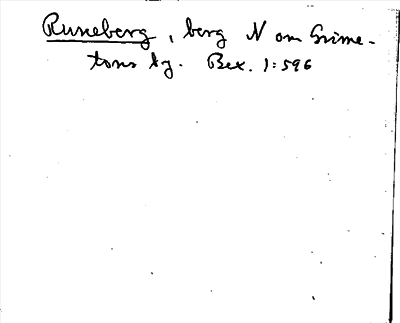 Runeberg, berg N om Grime-
tons by. Bex. 1:596